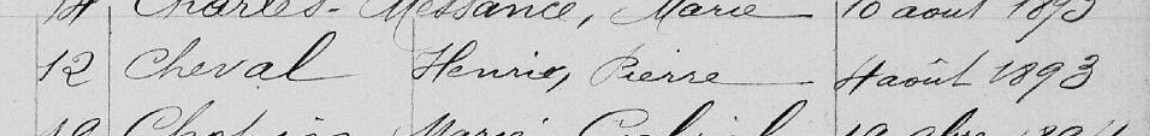 14 Charles-Messance, Marie 10 août 1893
12 Cheval Henri, Pierre 4 août 1893
19 Marie